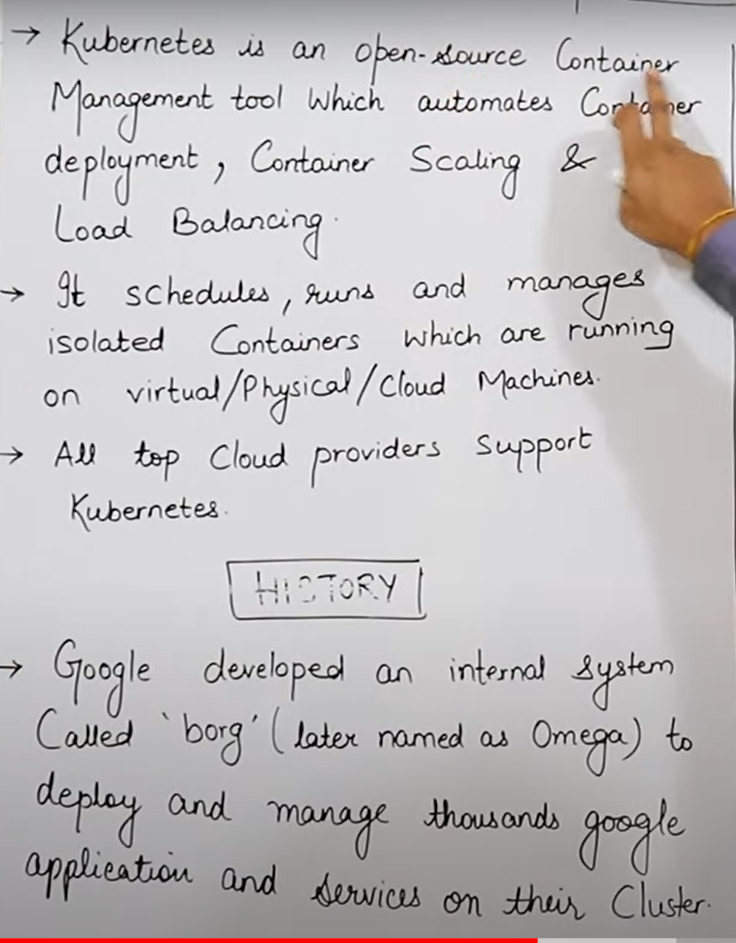 → Kubernetes is an open-source Container
Management tool which automates Container
deployment, Container Scaling &
Load Balancing.
→ It schedules, runs and manages
isolated Containers which are running
on virtual/Physical/Cloud Machines.
→ All top Cloud providers support
Kubernetes.
HISTORY
→ Google developed an internal system
Called 'borg' (later named as Omega) to
deploy and manage thousands google
application and services on their Cluster.